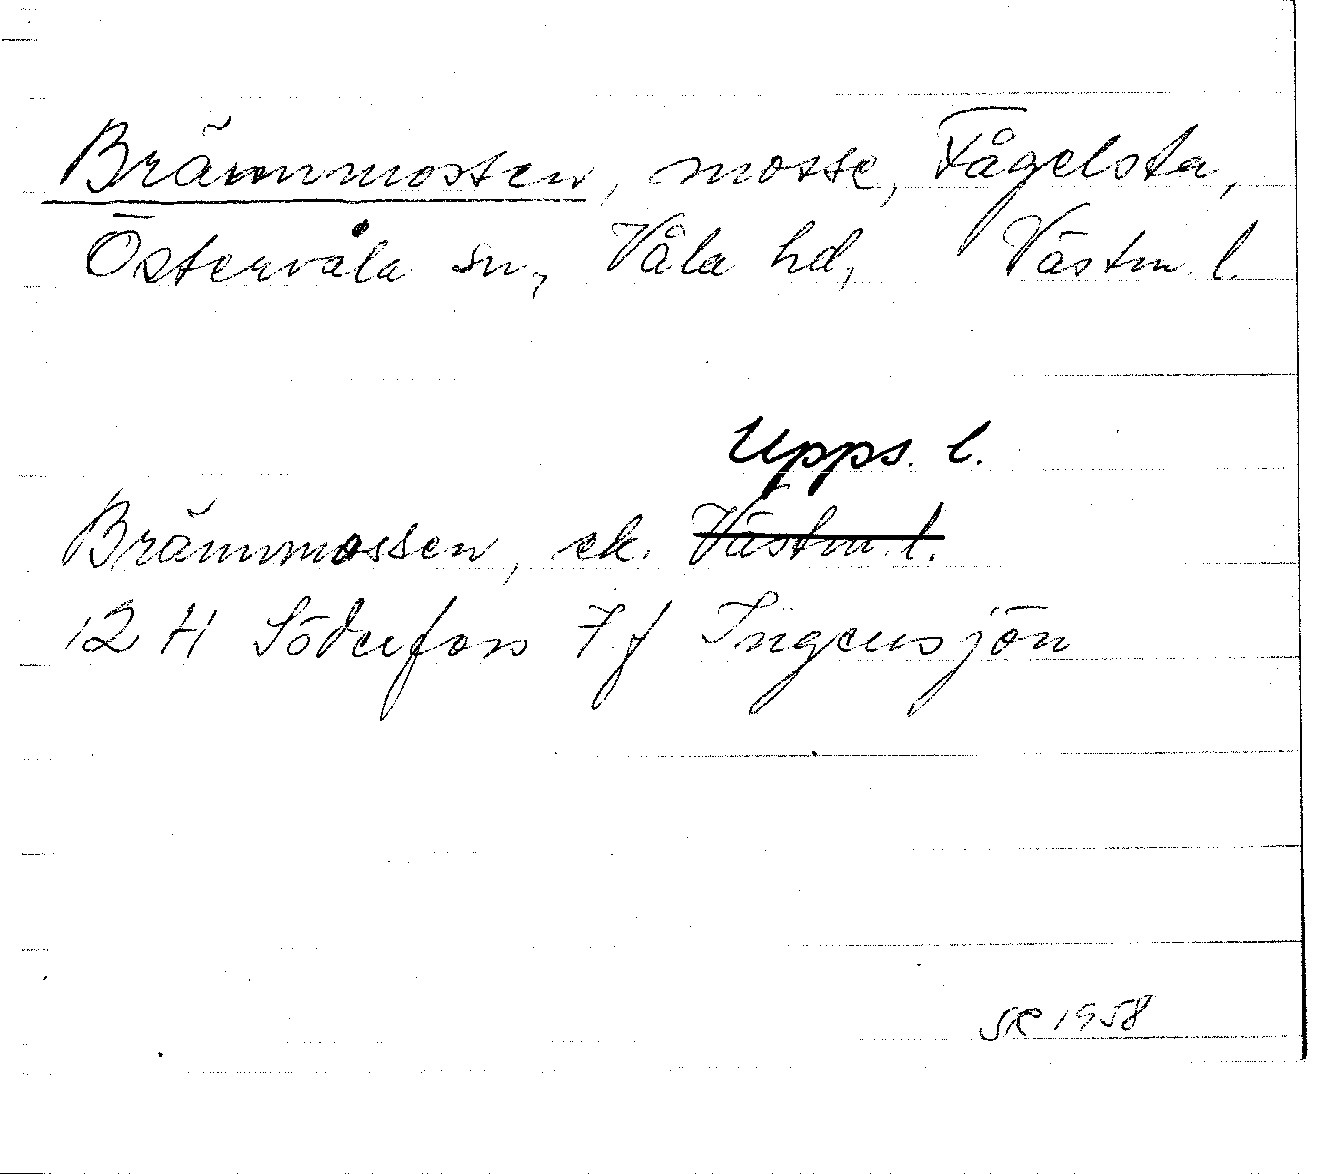 Brännmossen, mosse, Fågelsta,
Östervåla sn, Våla hd, Västm. l.
Upps. l.
Brännmossen, ek. Västm. l.
12 H Söderfors 7 f Ingensjön
SR 1958